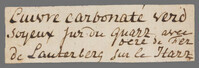 Cuivre carbonaté verd
Soyeux sur du Quarz avec
ocre de Fer
de Lauterberg sur le Harz